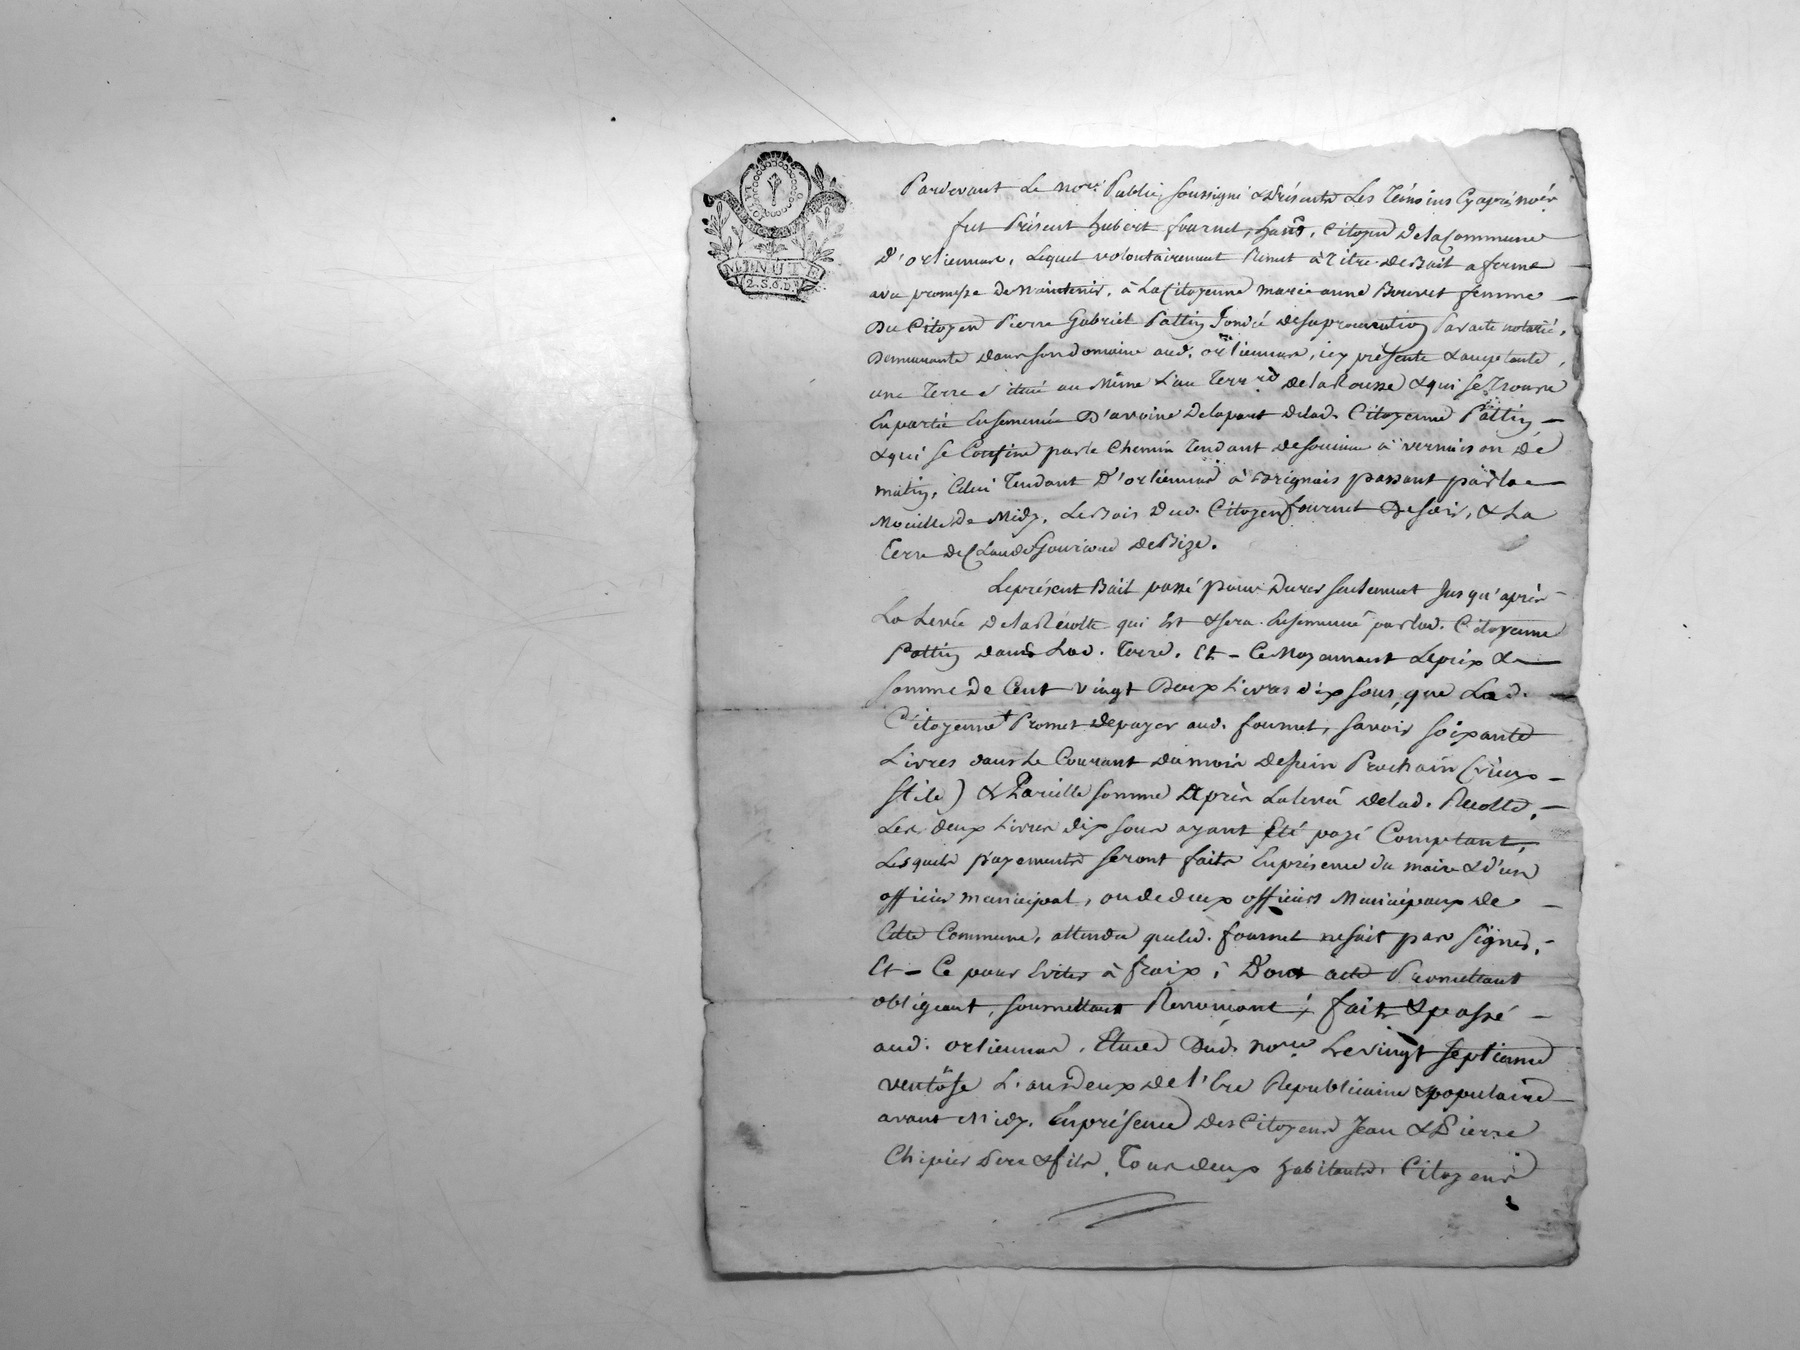 MINUTE
2.S.6.D.
Pardevant Le nore. Public soussigné & Présents Les Témoins Cyaprès només
fut Présent hubert fournet, Citoyen De la Commune
D'orliennas, Lequel volontairement Remet à titre de Bail a ferme
avec promesse De Maintenir, à La Citoyenne marie anne Bouvet femme
Du Citoyen Pierre Gabriel Pattin fondé de sa procuration Par acte notarié,
Demeurante dans son domaine aud. orliennas, icy présente & acceptante,
une Terre située au Même Lieu Terrrd De la Rousse & qui se Trouve
En partie Ensemencée D'avoine De la part de lad. Citoyenne Pattin
& qui se Confine par le Chemin Tendant de soucieu à vernaison De
matin, Celui Tendant D'orliennas à Brignais passant par la
Mouille De Midy, Le Bois Dud. Citoyen fournet De soir, & La
Terre De Claude De Bize.
Le présent Bail passé pour Durer seulement Jusqu'après
La Levée De la Récolte qui Est & sera Ensemencé par lad. Citoyenne
Pattin dans Lad. Terre. Et Ce Moyennant Le prix &
somme De Cent vingt Deux Livres dix sous, que Lad.
Citoyenne Promet de payer aud. fournet, savoir soixante
Livres dans Le Courant du mois De Juin Prochain (vieux
stile) & Pareille somme Après La levée De lad. Récolte,
Les deux Livres dix sous ayant Eté payé Comptant,
Lesquels payements seront faits En présence du maire & d'un
officier municipal, ou de deux officiers Municipaux De
Cette Commune, attendu que led. fournet ne sait pas signer,
Et Ce pour Eviter à fraix; Dont acte Promettant
obligeant, soumettant Renonçant; fait & passé
aud. orliennas, Etude Dud. nore Le vingt septieme
ventôse L'an Deux De l'Ere Republicaine & populaire
avant Midy, En présence Des Citoyens Jean & Pierre
Chipier Pere & fils, Tous deux habitants, Citoyens